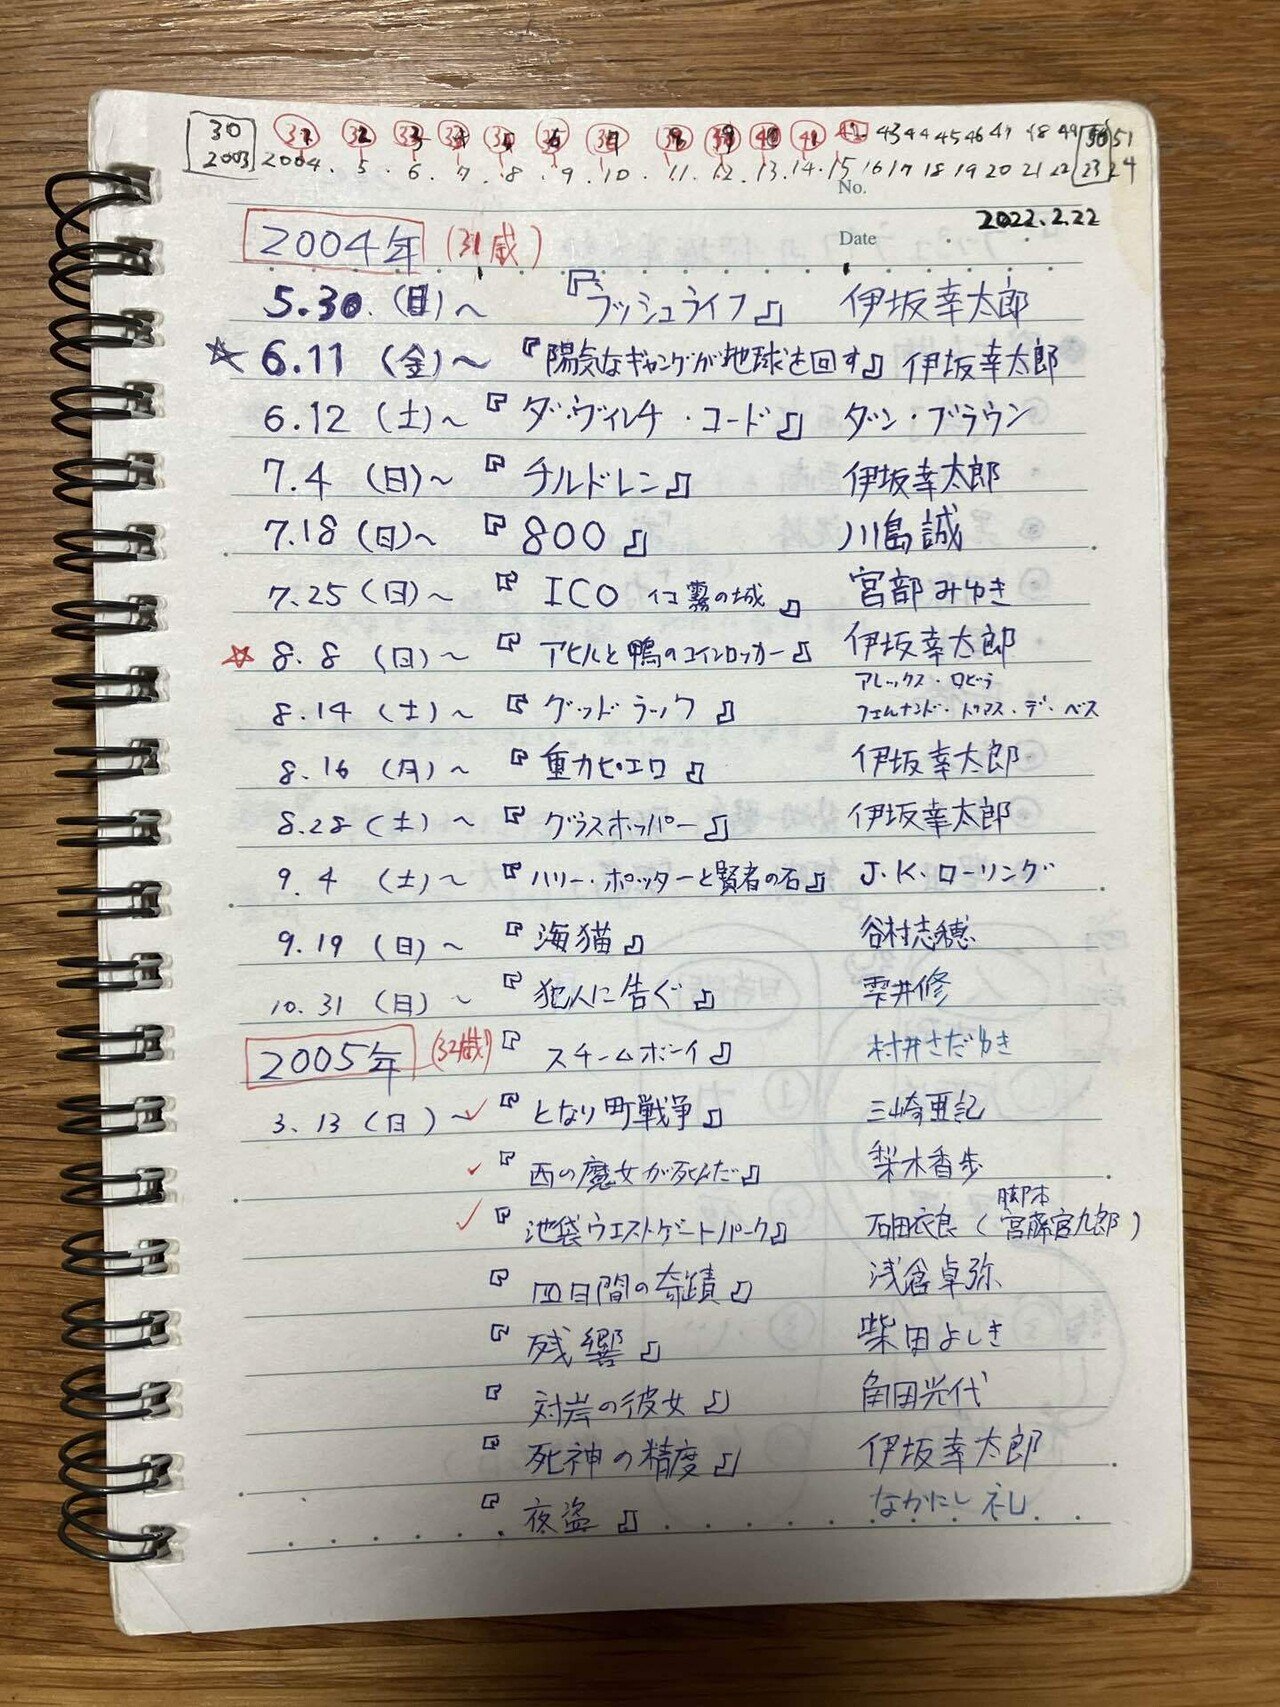 30 31 32 33 34 35 36 37 38 39 40 41 42 43 44 45 46 47 48 49 50 51
2003 2004 . 5 . 6 . 7 . 8 . 9 . 10 . 11 . 12 . 13 . 14 . 15 16 17 18 19 20 21 22 23 24
No.
2022.2.22
2004年 (31歳) Date ・ ・
5.30.(日)～ 『ラッシュライフ』 伊坂幸太郎
☆ 6.11 (金)～ 『陽気なギャングが地球を回す』 伊坂幸太郎
6.12 (土)～ 『ダ・ヴィンチ・コード』 ダン・ブラウン
7.4 (日)～ 『チルドレン』 伊坂幸太郎
7.18 (日)～ 『800』 川島誠
7.25 (日)～ 『ICO イコ 霧の城』 宮部みゆき
☆ 8.8 (日)～ 『アヒルと鴨のコインロッカー』 伊坂幸太郎
アレックス・ロビラ
8.14 (土)～ 『グッドラック』 フェルナンド・トリアス・デ・ベス
8.16 (月)～ 『重力ピエロ』 伊坂幸太郎
8.28 (土)～ 『グラスホッパー』 伊坂幸太郎
9.4 (土)～ 『ハリー・ポッターと賢者の石』 J・K・ローリング
9.19 (日)～ 『海猫』 谷村志穂
10.31 (日)～ 『犯人に告ぐ』 雫井修
2005年 (32歳) 『スチームボーイ』 村井さだゆき
3.13 (日)～ ✓ 『となり町戦争』 三崎亜記
✓ 『西の魔女が死んだ』 梨木香歩
脚本
✓ 『池袋ウエストゲートパーク』 石田衣良 (宮藤官九郎)
『四日間の奇蹟』 浅倉卓弥
『残響』 柴田よしき
『対岸の彼女』 角田光代
『死神の精度』 伊坂幸太郎
『夜盗』 なかにし礼